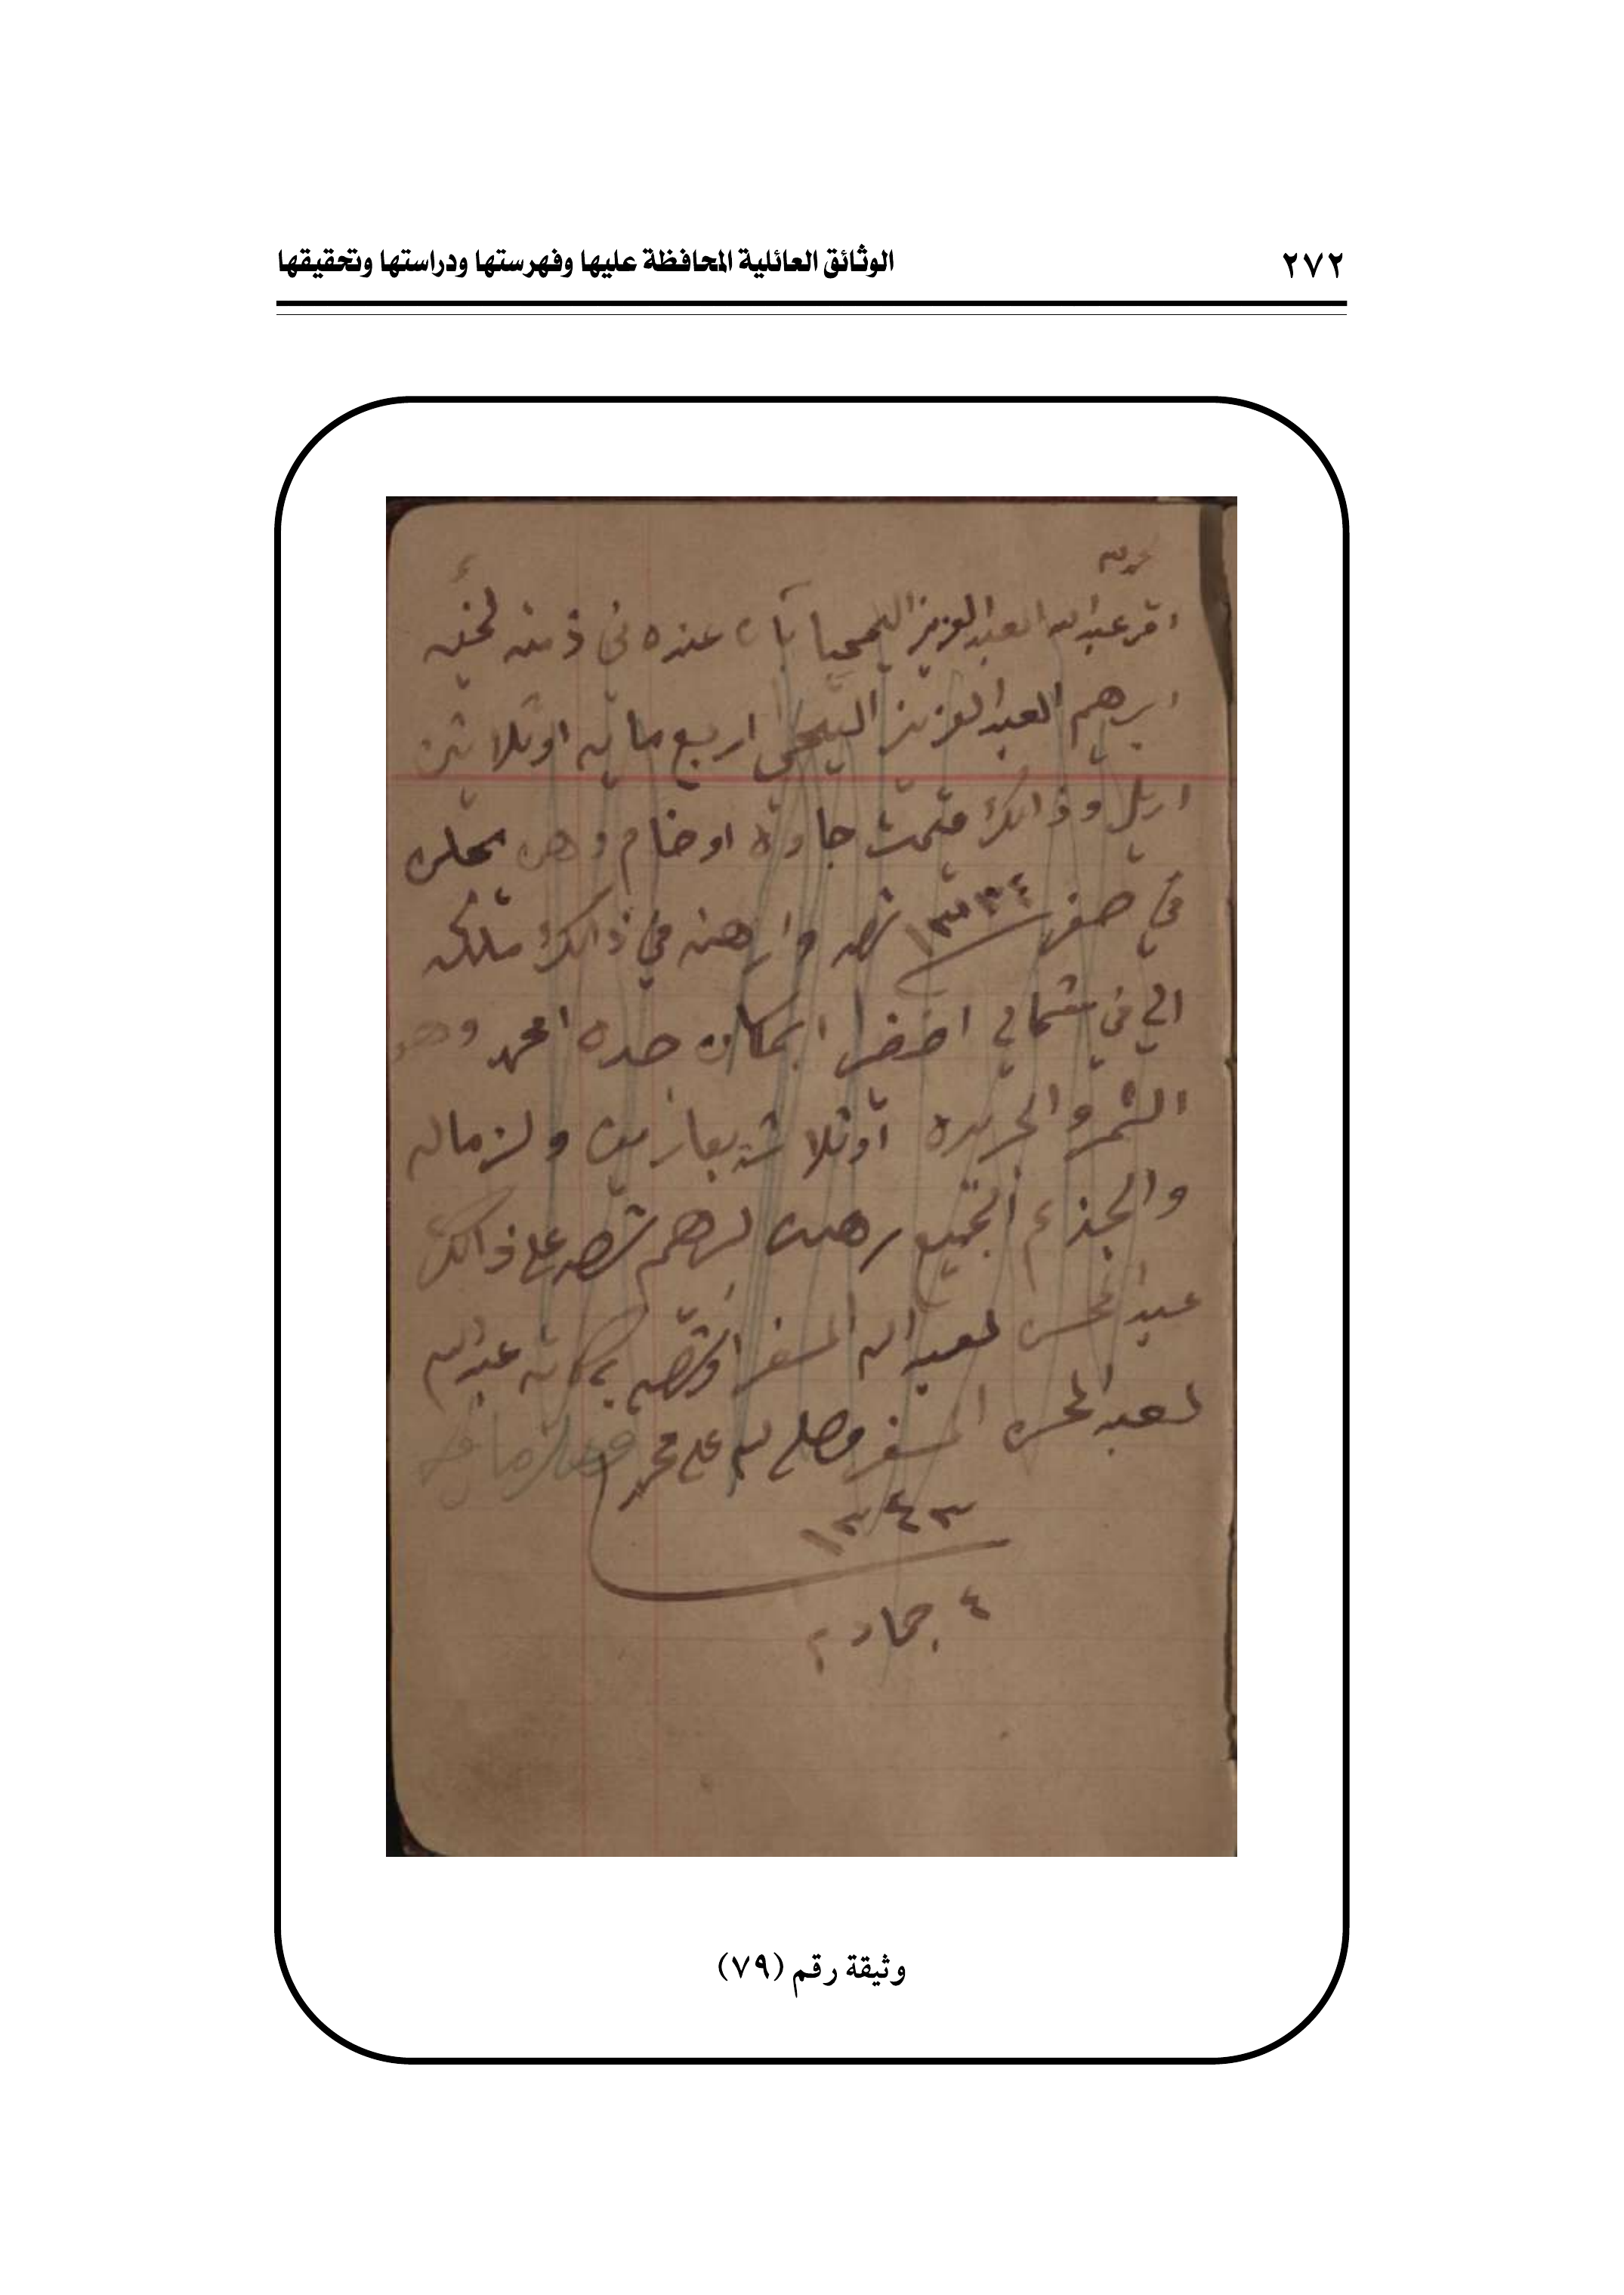 ٢٧٢
الوثائق العائلية المحافظة عليها وفهرستها ودراستها وتحقيقها
اقر عبدالله العبدالعزيز اليحيا بان عنده في ذمته
ابرهيم العبدالعزيز اليحيى اربع مايه اوثلاثين
اريل وذالك قيمت جاودة اوخام وهن يحلن
في صفر ١٣٣٤ وارهنه في ذالك ملكه
الي في شمالي اخضرا ابمكان جده امحمد
الثمر والجريده اوثلاث بعارين ولزماله
والجذع الجميع رهن لبرهيم شهد على ذالك
عبدالمحسن لعبدالله المسفر اوشهد به كاتبه عبدالله
لعبدالمحسن المسفر وصلى الله على محمد
١٣٤٣
٤ جماد
وثيقة رقم (٧٩)